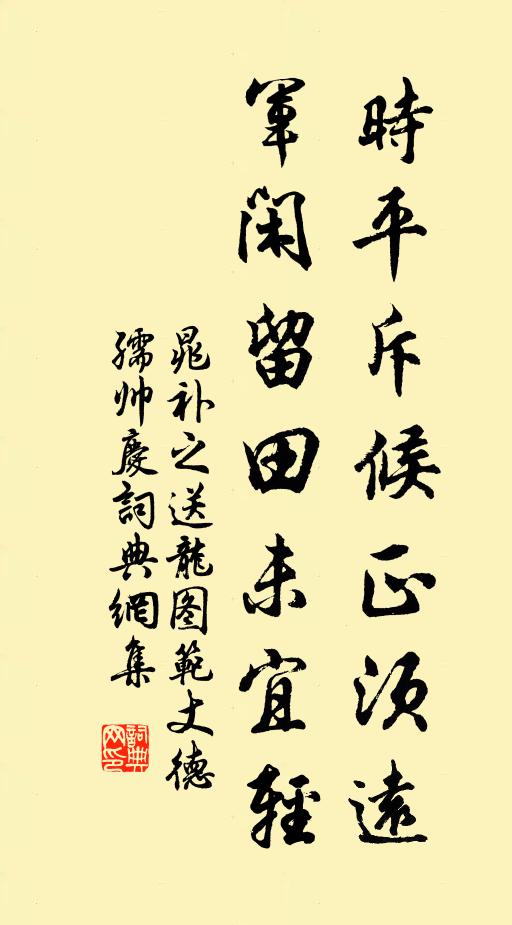 時平斥候正須遠
軍閑留田未宜輕
晁補之送龍图範丈德
孺帅慶詞典網集
詞典网印